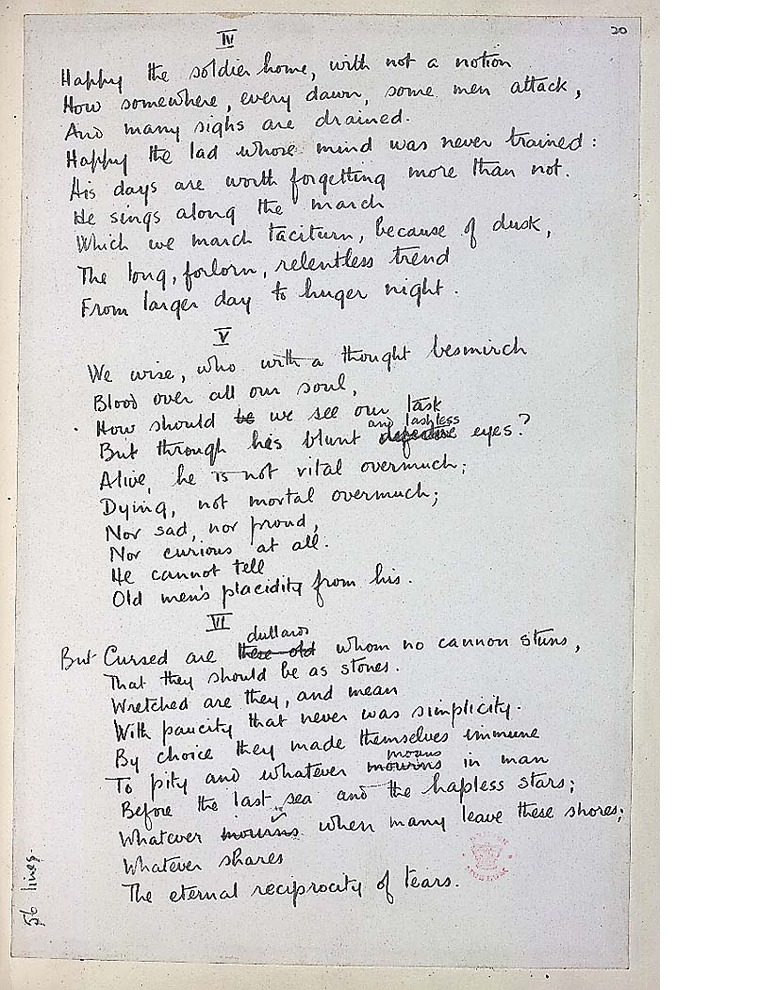 20
IV
Happy the soldier home, with not a notion
How somewhere, every dawn, some men attack,
And many sighs are drained.
Happy the lad whose mind was never trained:
His days are worth forgetting more than not.
He sings along the march
Which we march taciturn, because of dusk,
The long, forlorn, relentless trend
From larger day to huger night.
V
We wise, who with a thought besmirch
Blood over all our soul,
How should be we see our task
and lashless
But through his blunt eyes?
Alive, he is not vital overmuch;
Dying, not mortal overmuch;
Nor sad, nor proud,
Nor curious at all.
He cannot tell
Old men's placidity from his.
VI
dullards
But Cursed are these old whom no cannon stuns,
That they should be as stones.
Wretched are they, and mean
With paucity that never was simplicity.
By choice they made themselves immune
moans
To pity and whatever mourns in man
Before the last sea and the hapless stars;
Whatever mourns when many leave these shores;
Whatever shares
The eternal reciprocity of tears.
56 lines.